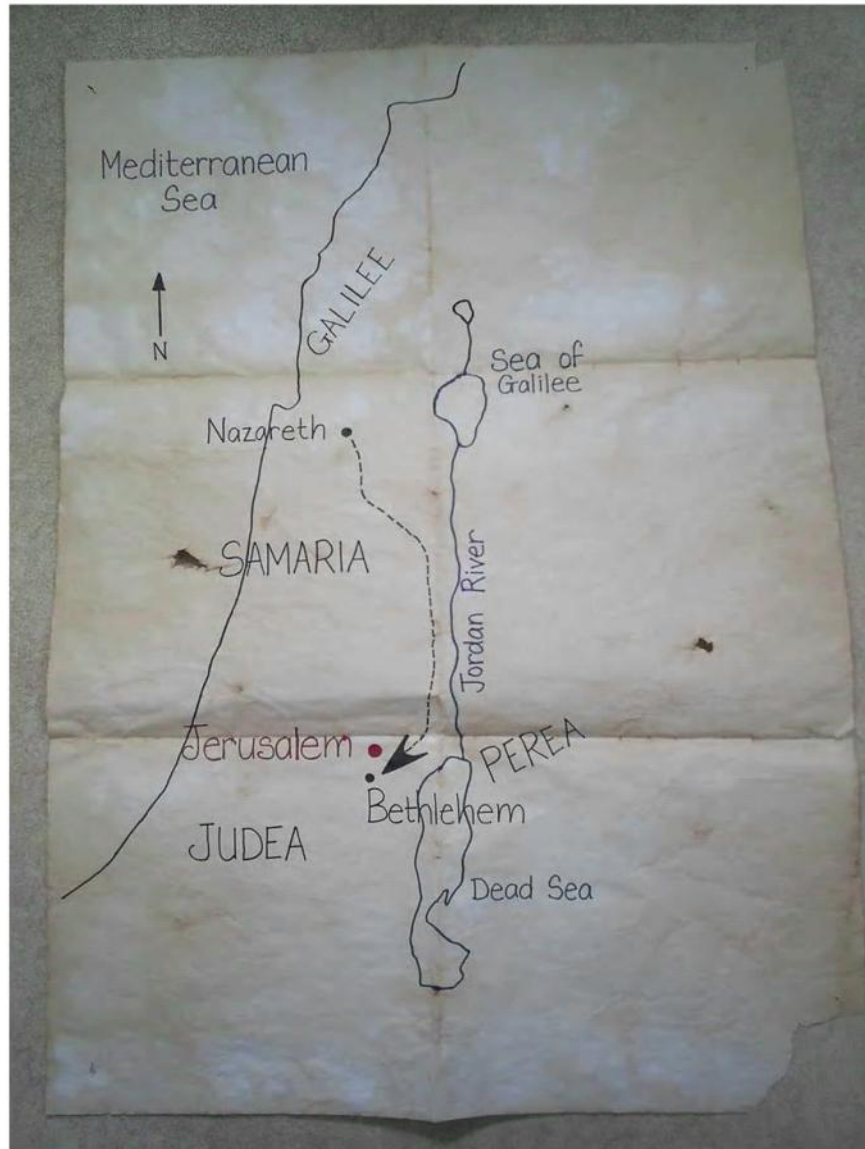 Mediterranean
Sea
GALILEE
N
Sea of
Galilee
Nazareth
SAMARIA
Jordan River
Jerusalem
PEREA
Bethlehem
JUDEA
Dead Sea